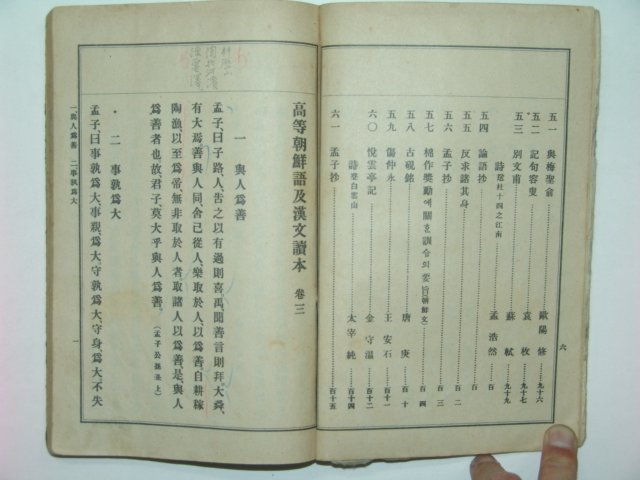 五一 與梅聖兪……歐陽修……九十六
五二 記句容叟……袁枚……九十七
五三 別文甫……蘇軾……九十九
詩 送杜十四之江南……孟浩然……百
五四 論語抄……百
五五 反求諸其身……百二
五六 孟子抄……百三
五七 棉作奬勵에關한訓令의要旨(朝鮮文)……百四
五八 古硯銘……唐庚……百十
五九 傷仲永……王安石……百十一
六〇 悅雲亭記……金守溫……百十二
詩 登白雲山……太宰純……百十四
六一 孟子抄……百十五
六
高等朝鮮語及漢文讀本 卷三
一 與人爲善
孟子、曰子路、人、吿之以有過則喜、禹、聞善言則拜、大舜、
有大焉、善與人同、舍己從人、樂取於人、以爲善、自耕稼
陶漁、以至爲帝、無非取於人者、取諸人以爲善、是、與人
爲善者也、故、君子、莫大乎與人爲善、(孟子公孫丑上)
二 事孰爲大
孟子、曰事孰爲大、事親、爲大、守孰爲大、守身、爲大、不失
一、與人爲善 二、事孰爲大
一